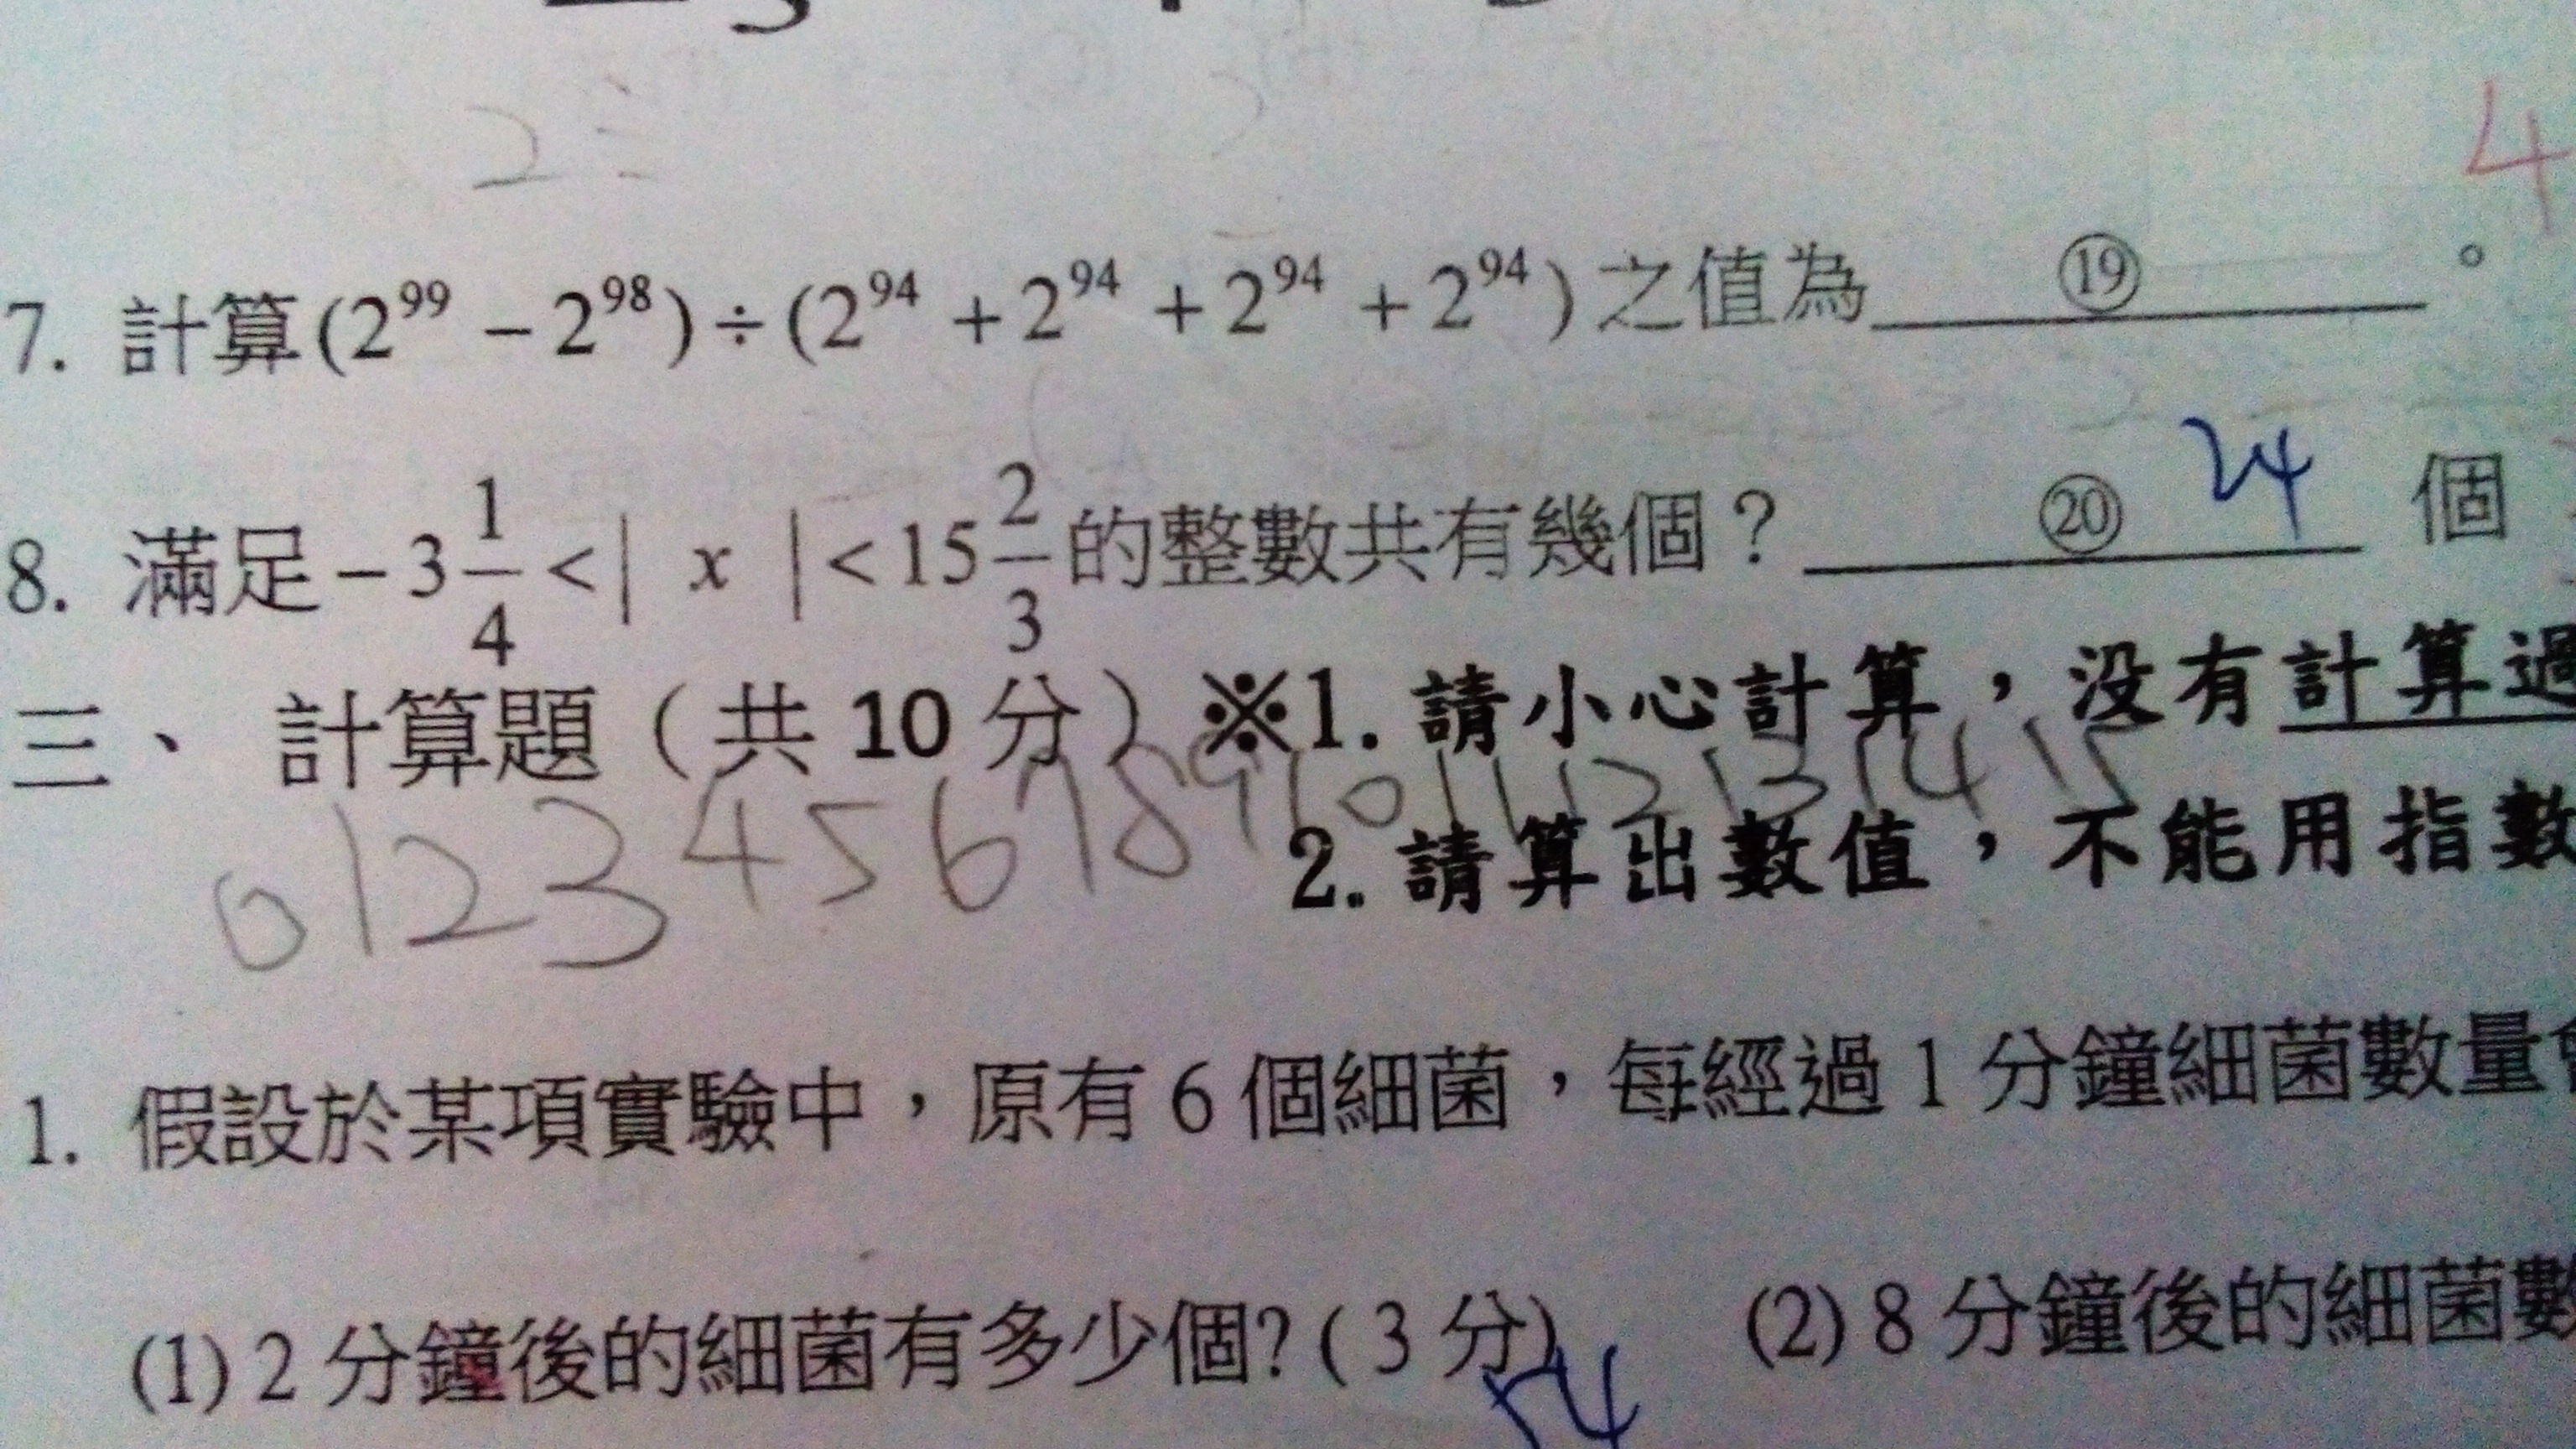 4
7. 計算(2^99 − 2^98) ÷ (2^94 + 2^94 + 2^94 + 2^94) 之值為 ⑲ 。
8. 滿足 −3 1/4 < | x | < 15 2/3 的整數共有幾個？ ⑳ 24 個
三、 計算題（共 10 分）※1. 請小心計算，沒有計算過
0 1 2 3 4 5 6 7 8 9 10 11 12 13 14 15
2. 請算出數值，不能用指數
1. 假設於某項實驗中，原有 6 個細菌，每經過 1 分鐘細菌數量
(1) 2 分鐘後的細菌有多少個? ( 3 分) (2) 8 分鐘後的細菌數
54